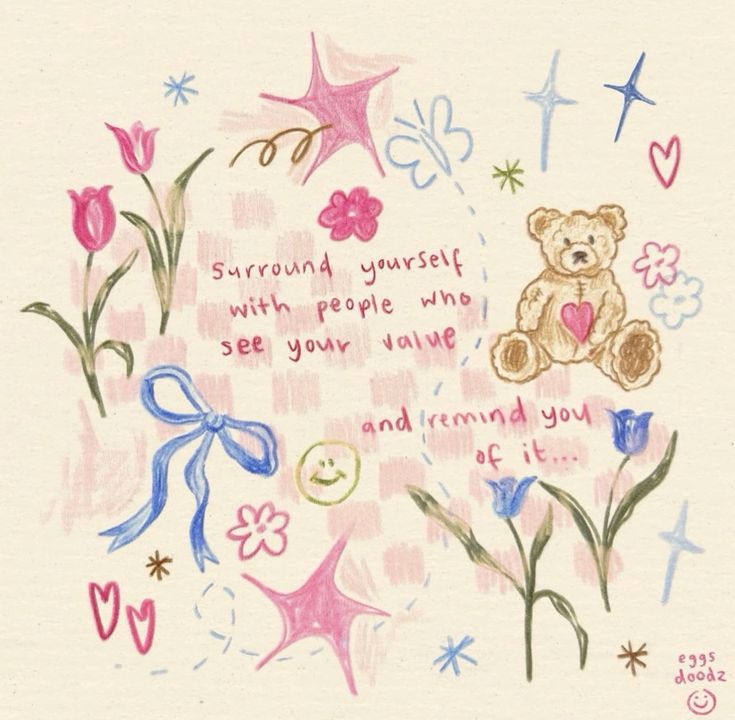 surround yourself
with people who
see your value
and remind you
of it...
eggs
doodz